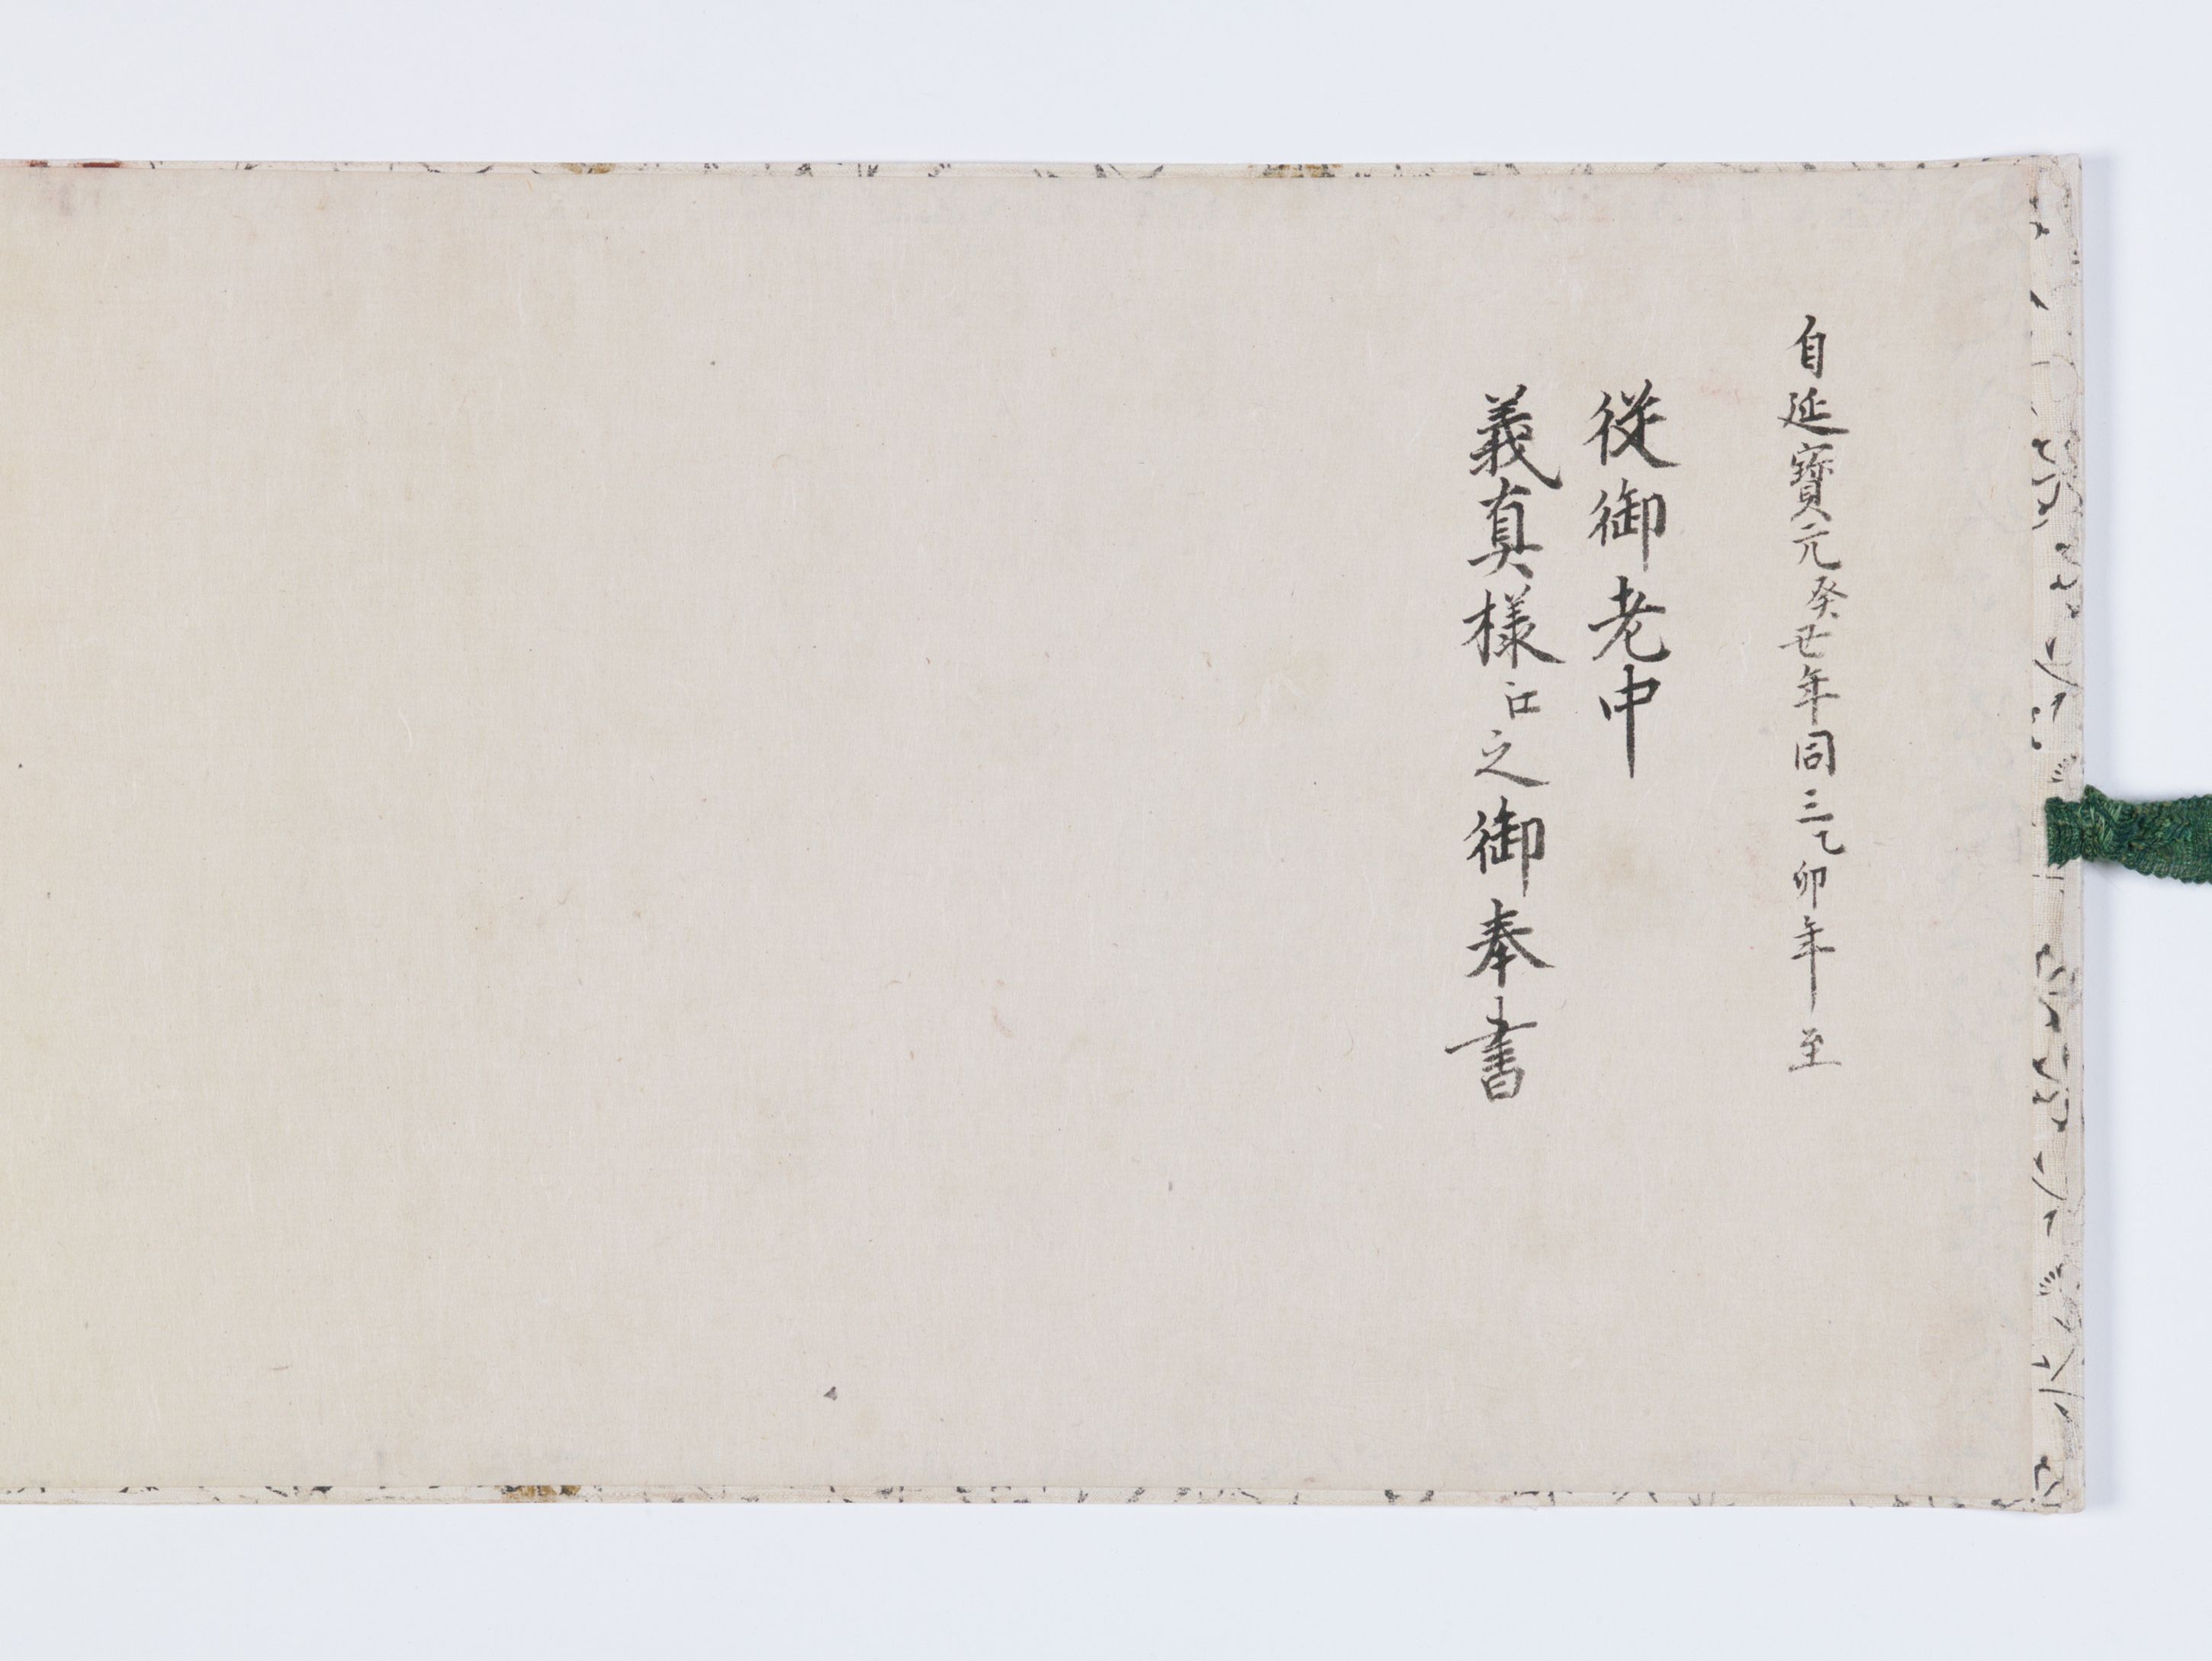 自延寶元癸丑年同三乙卯年至
從御老中
義真様江之御奉書